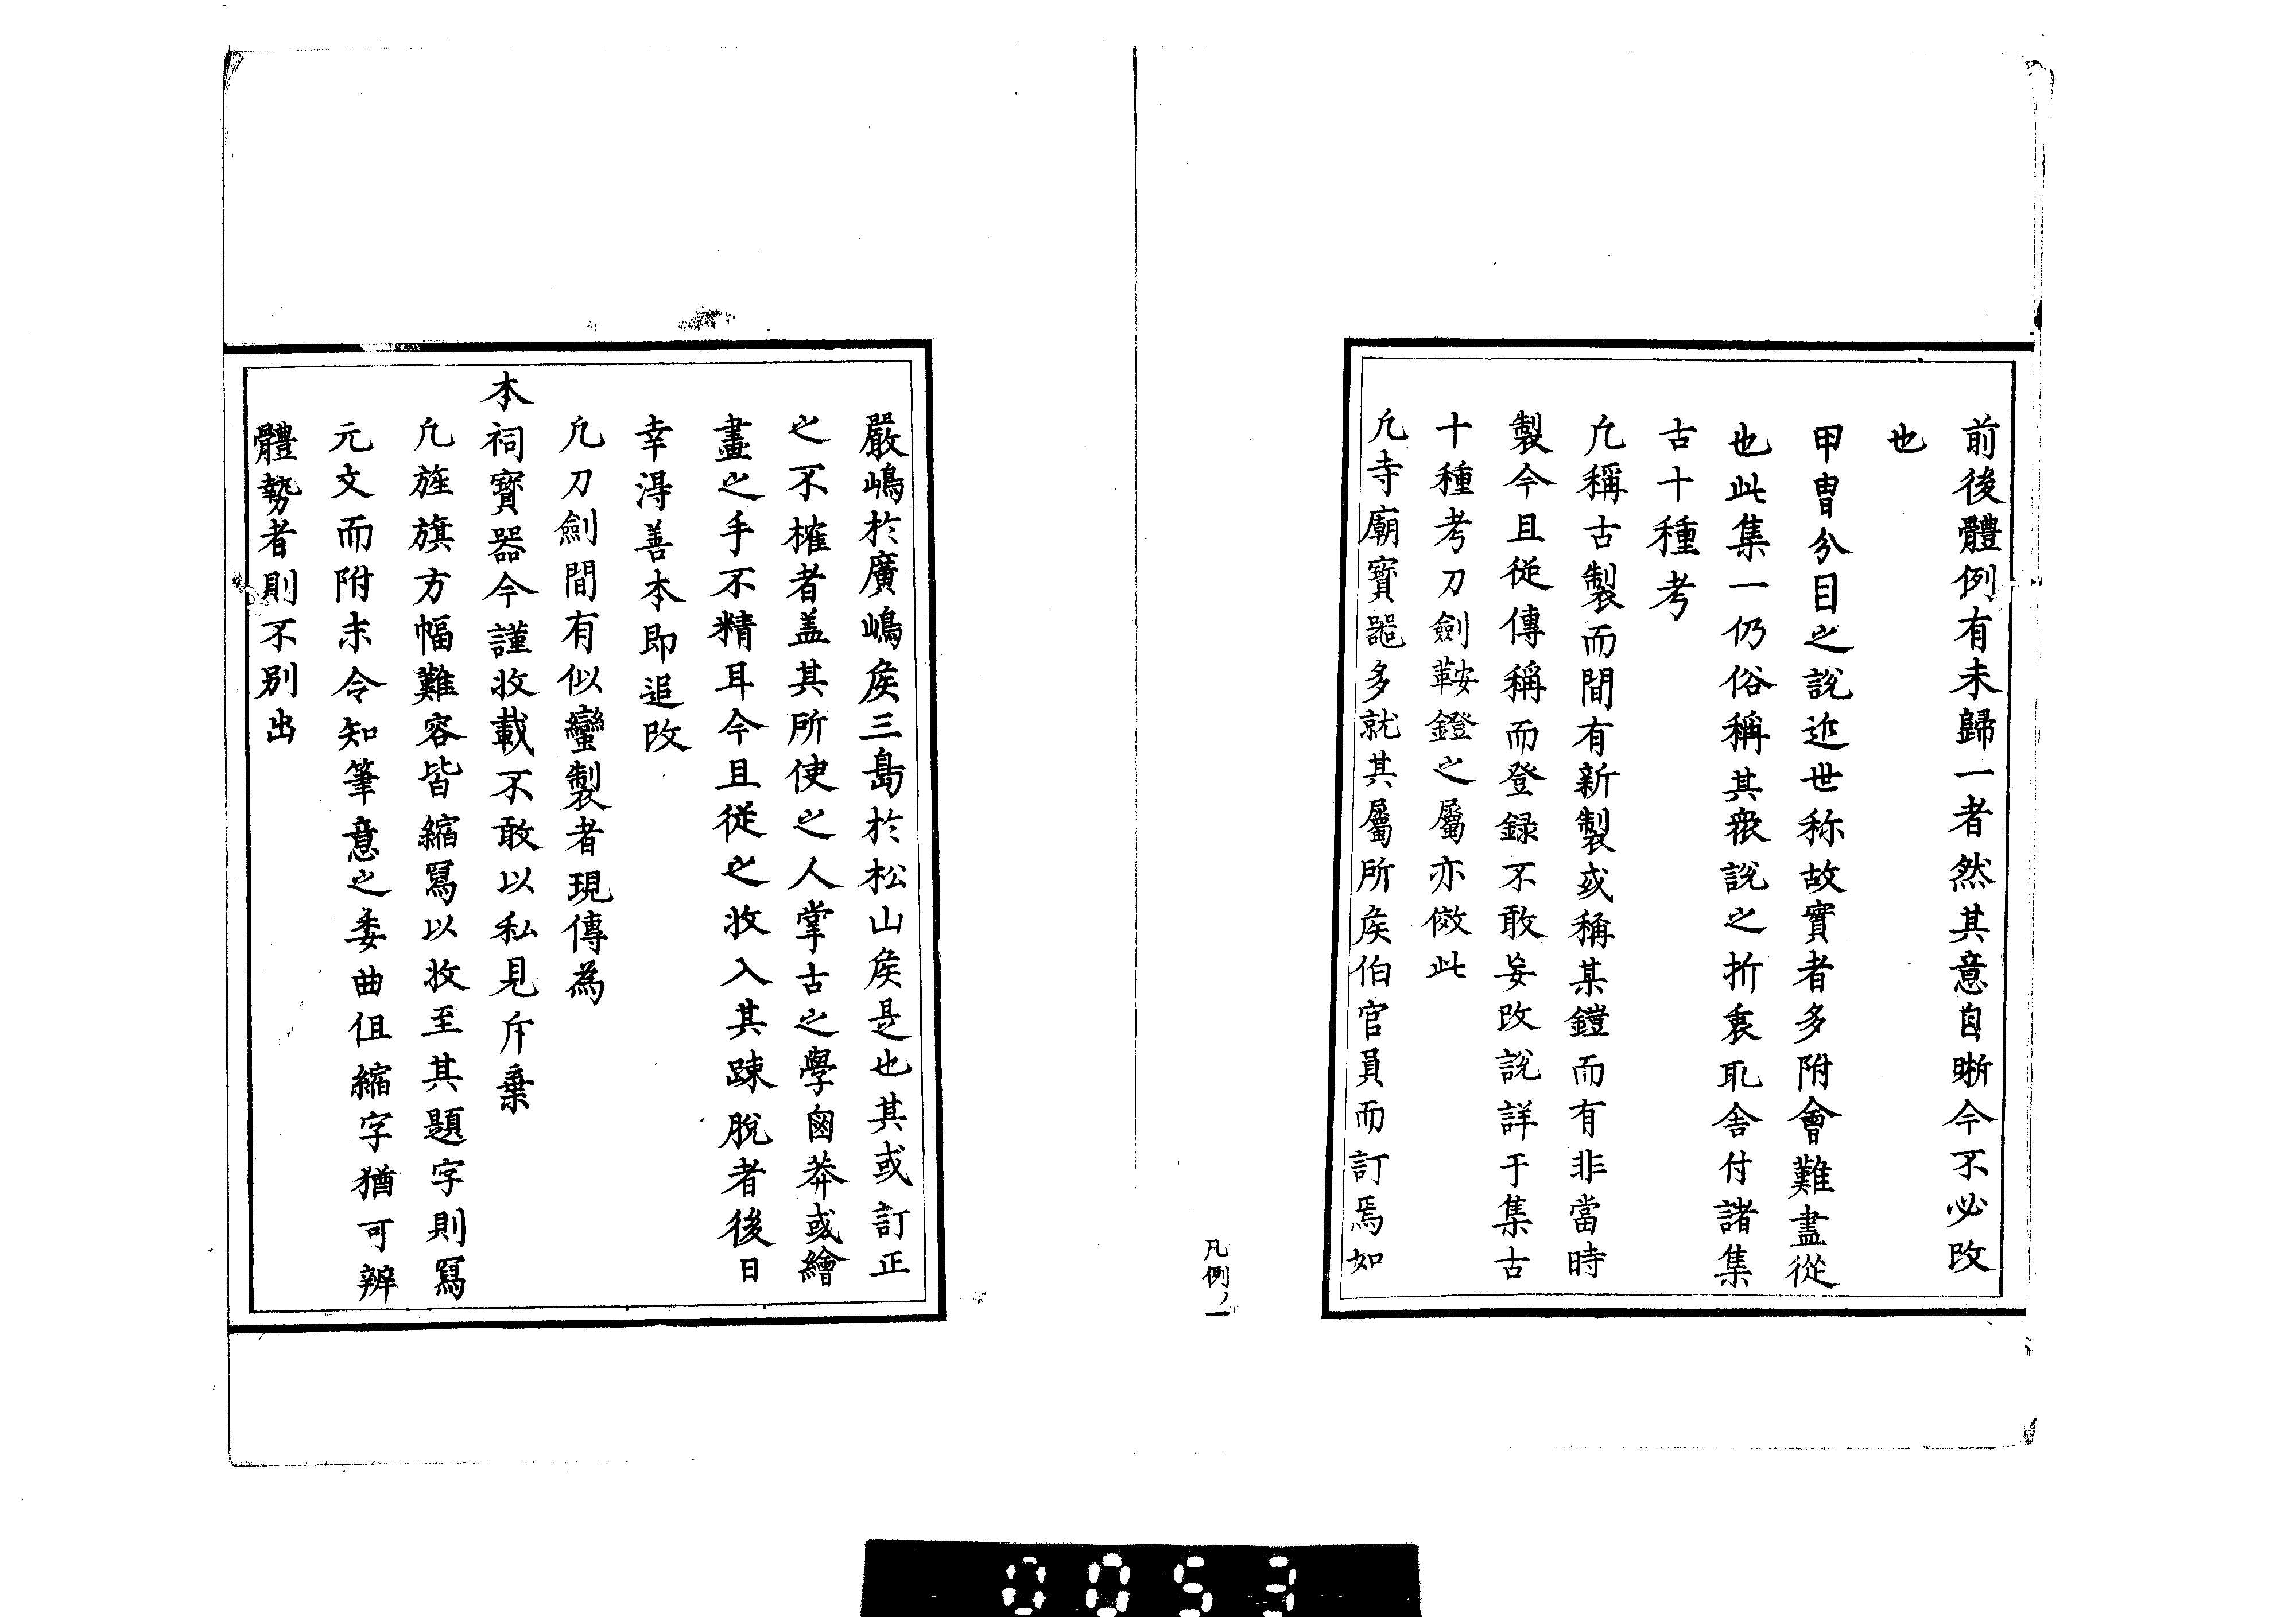 前後體例有未歸一者然其意自晰今不必改
也
甲冑分目之說近世称故實者多附會難盡從
也此集一仍俗稱其衆說之折衷取舎付諸集
古十種考
凢稱古製而間有新製或稱某鎧而有非當時
製今且従傳稱而登録不敢妄改說詳于集古
十種考刀劍鞍鐙之屬亦倣此
凢寺廟寶噐多就其屬所矦伯官員而訂焉如
凡例ノ一
嚴嶋於廣嶋矦三島於松山矦是也其或訂正
之不榷者盖其所使之人掌古之學鹵莽或繪
畫之手不精耳今且従之收入其踈脫者後日
幸淂善本即追改
凢刀劍間有似蠻製者現傳為
本祠寶器今謹收載不敢以私見斥棄
凢旌旗方幅難容皆縮寫以收至其題字則寫
元文而附末令知筆意之委曲但縮字猶可辨
體勢者則不別出
0053